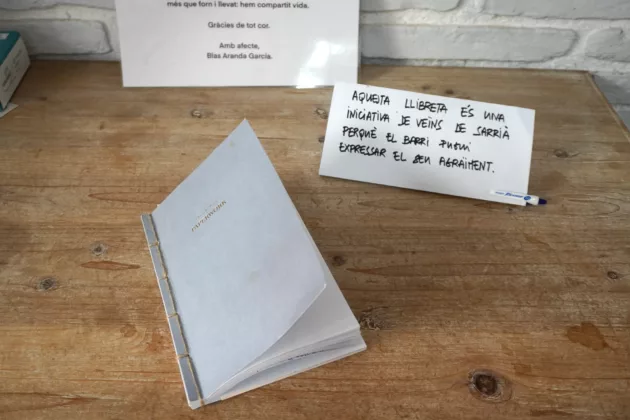 més que forn i llevat: hem compartit vida.
Gràcies de tot cor.
Amb afecte,
Blas Aranda García.
AQUESTA LLIBRETA ÉS UNA
INICIATIVA DE VEÏNS DE SARRIÀ
PERQUÈ EL BARRI PUGUI
EXPRESSAR EL SEU AGRAÏMENT.
PAPERWORK